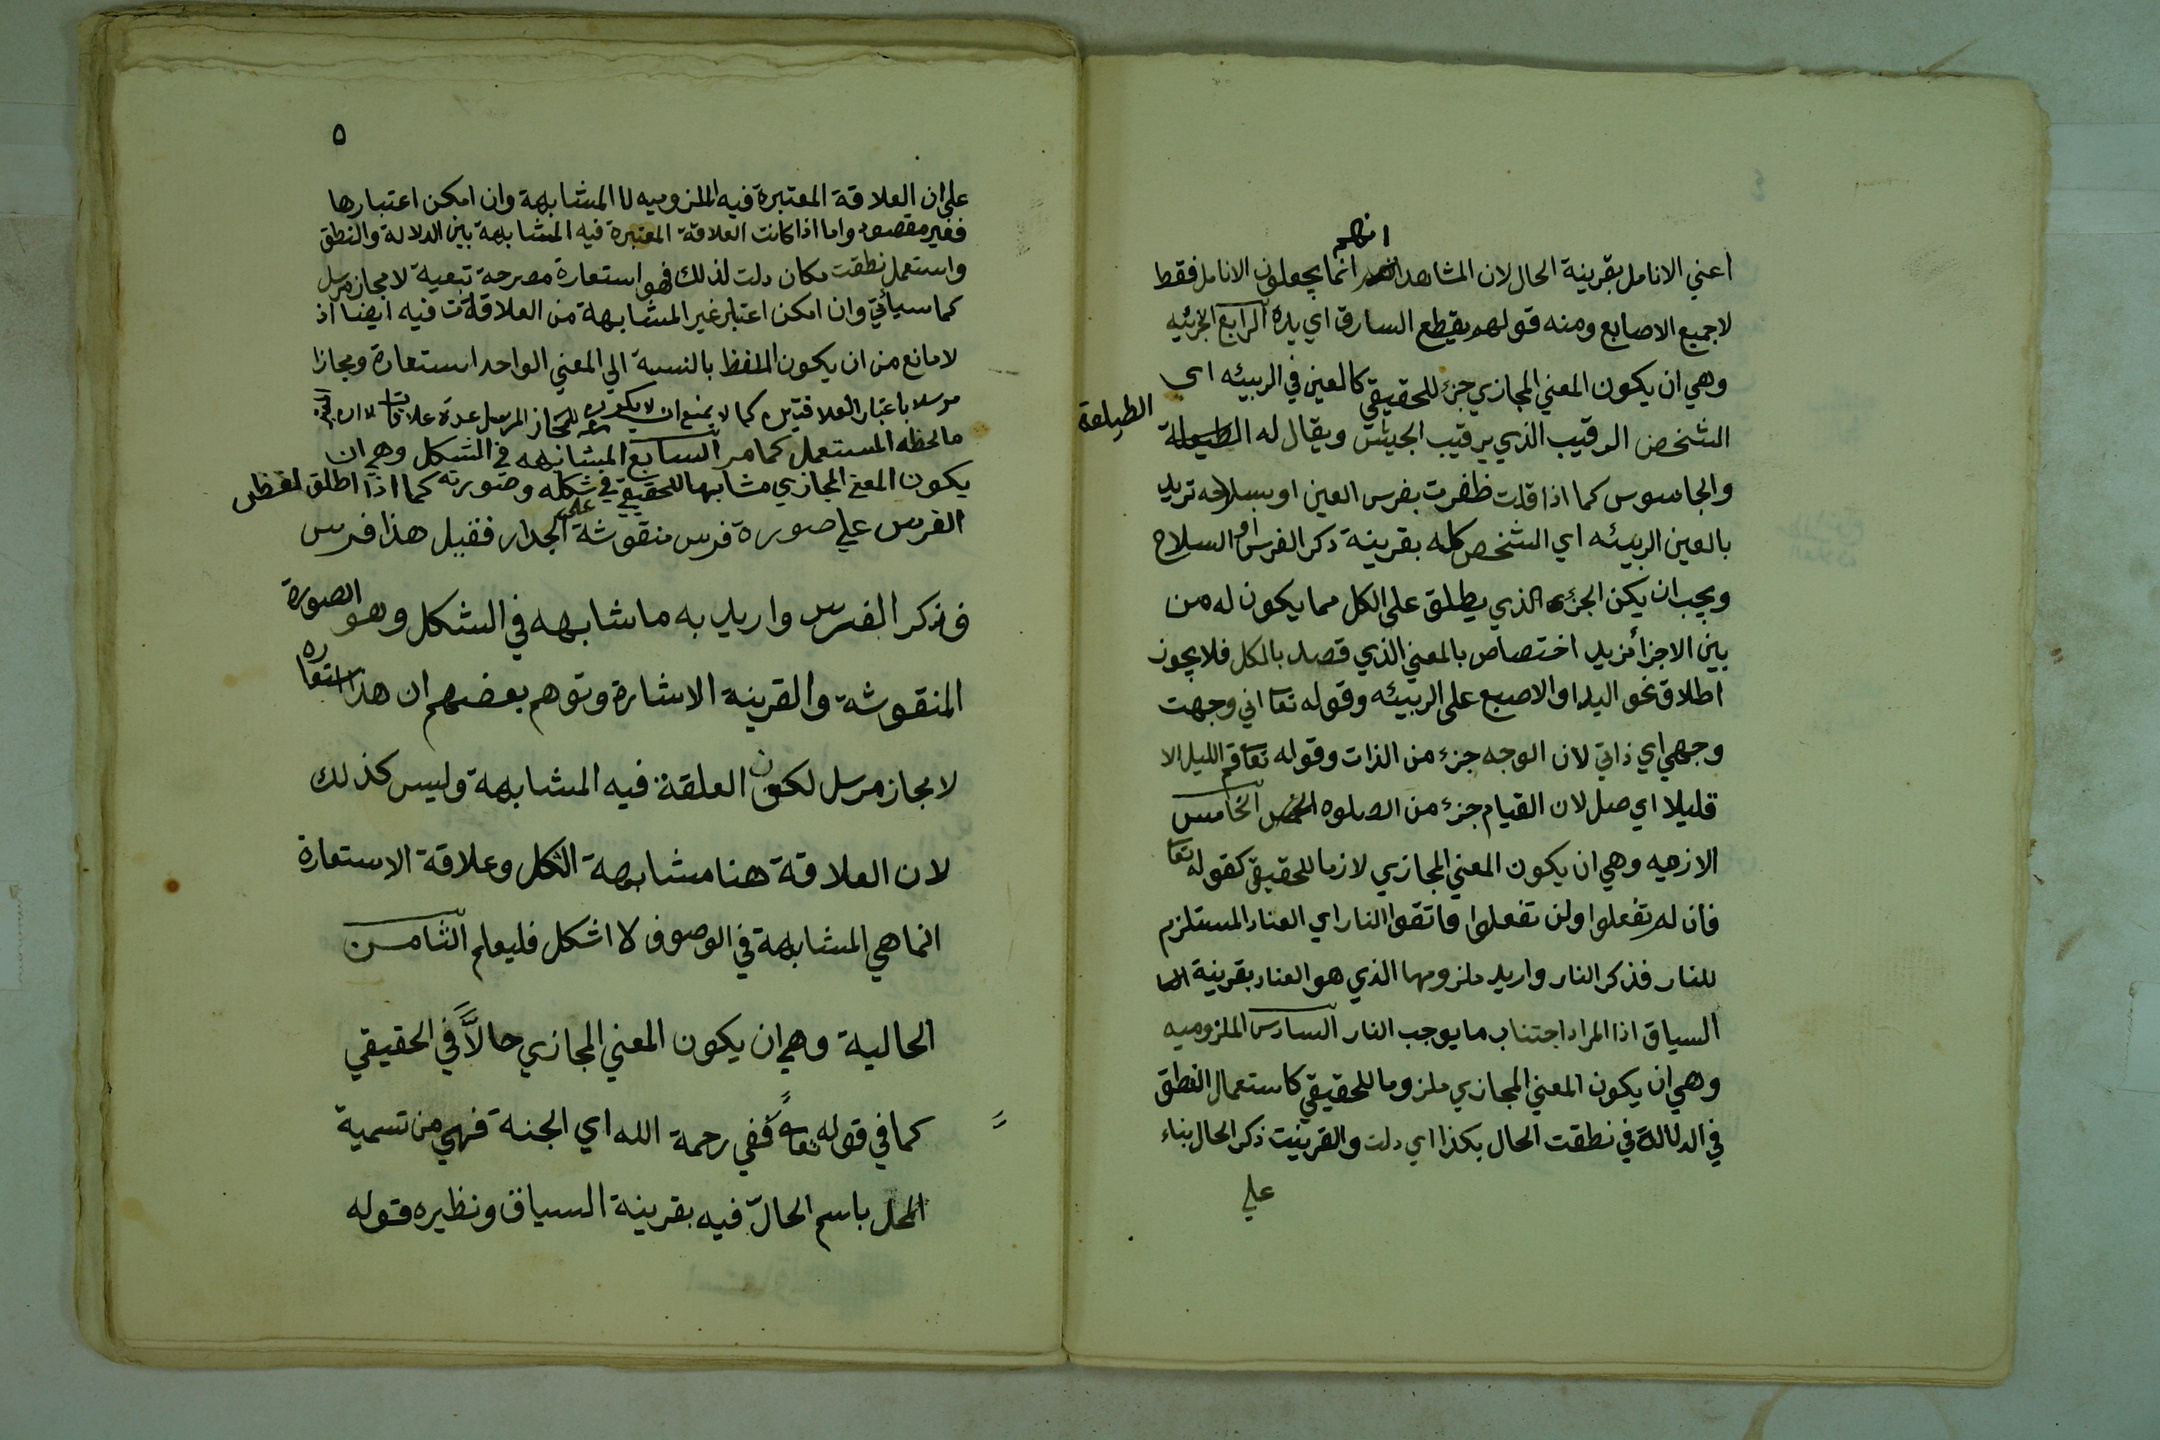 انهم
اعني الانامل بقرينة الحال لان المشاهد انما يجعلون الانامل فقط
لاجميع الاصابع ومنه قولهم يقطع السارق اي يده الرابع الجزئيه
وهي ان يكون المعني المجازي جزء للحقيقي كالعين في الربيئه اي
الشخص الرقيب الذي يرقيب الجيش ويقال له
الطيلعة
والجاسوس كما اذا قلت ظفرت بفرس العين او بسلاحه تريد
بالعين الربيئه اي الشخص كله بقرينة ذكر الفرس او السلاح
ويجب ان يكن الجزء الذي يطلق على الكل مما يكون له من
بين الاجزا مزيد اختصاص بالمعني الذي قصد بالكل فلا يجوز
اطلاق نحو اليد او الاصبع على الربيئه وقوله تعا اني وجهت
وجهي اي ذاتي لان الوجه جزء من الذات وقوله تعا قم الليل الا
قليلا اي صل لان القيام جزء من الصلوه الخامس
الازميه وهي ان يكون المعني المجازي لازما للحقيقي كقوله تعا
فان لم تفعلوا ولن تفعلوا فاتقوا النار اي العناد المستلزم
للنار فذكر النار واريد ملزومها الذي هو العناد بقرينة
السياق اذا المراد اجتناب ما يوجب النار السادس الملزوميه
وهي ان يكون المعني المجازي ملزوما للحقيقي كاستعمال النطق
في الدلالة في نطقت الحال بكذا اي دلت والقرينت ذكر الحال بناء
علي
٥
على ان العلاقة المعتبرة فيه الملزوميه لا المشابهة وان امكن اعتبارها
فغير مقصود واما اذا كانت العلاقة المعتبرة فيه المشابهة بين الدلالة والنطق
واستعمل نطقت مكان دلت لذلك فهو استعارة مصرحة تبعية لا مجاز مرسل
كما سيأتي وان امكن اعتبار غير المشابهة من العلاقات فيه ايضا اذ
لا مانع من ان يكون اللفظ بالنسبة الي المعني الواحد استعارة ومجازا
مرسلا باعتبار العلاقتين كما لا يمنع ان يكون للمجاز المرسل عدة علاقات
ما لحظه المستعمل كما مر السابع المشابهه في الشكل وهي ان
يكون المعني المجازي مشابها للحقيقي في شكله وصورته كما اذا اطلق لفظ
الفرس علي صورة فرس منقوشة علي الجدار فقيل هذا فرس
فذكر الفرس واريد به ما شابهه في الشكل وهو الصورة
المنقوشة والقرينة الاشارة وتوهم بعضهم ان هذا استعاره
لا مجاز مرسل لكون العلقة فيه المشابهة وليس كذلك
لان العلاقة هنا مشابهة الكل وعلاقة الاستعارة
انما هي المشابهة في الوصوف لا اشكل فليعلم الثامن
الحالية وهي ان يكون المعني المجازي حالاً في الحقيقي
كما في قوله تعا ففي رحمة الله اي الجنة فهي من تسمية
المحل باسم الحالّ فيه بقرينة السياق ونظيره قوله